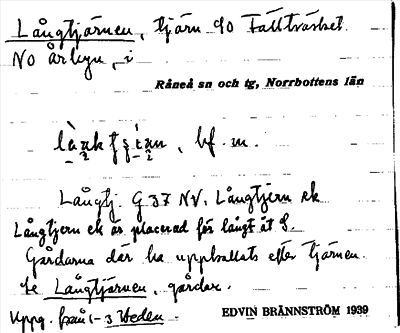 Långtjärnen, tjärn 90 Fällträsket.
NO Årbyn, i
Råneå sn och tg, Norrbottens län
bf. m.
Långtj. G 37 NV. Långtjern ek
Långtjern ek är placerad för långt åt S.
Gårdarna där ha uppkallats efter tjärnen.
se Långtjärnen, gårdar.
Uppg. från 1-3 Heden.
EDVIN BRÄNNSTRÖM 1939